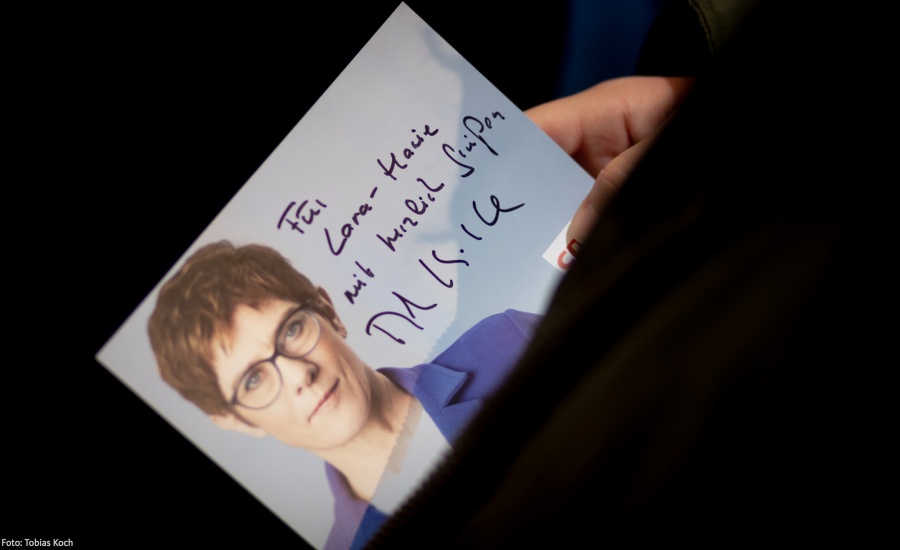 Für
Lara-Marie
mit herzlich Grüßen
Foto: Tobias Koch